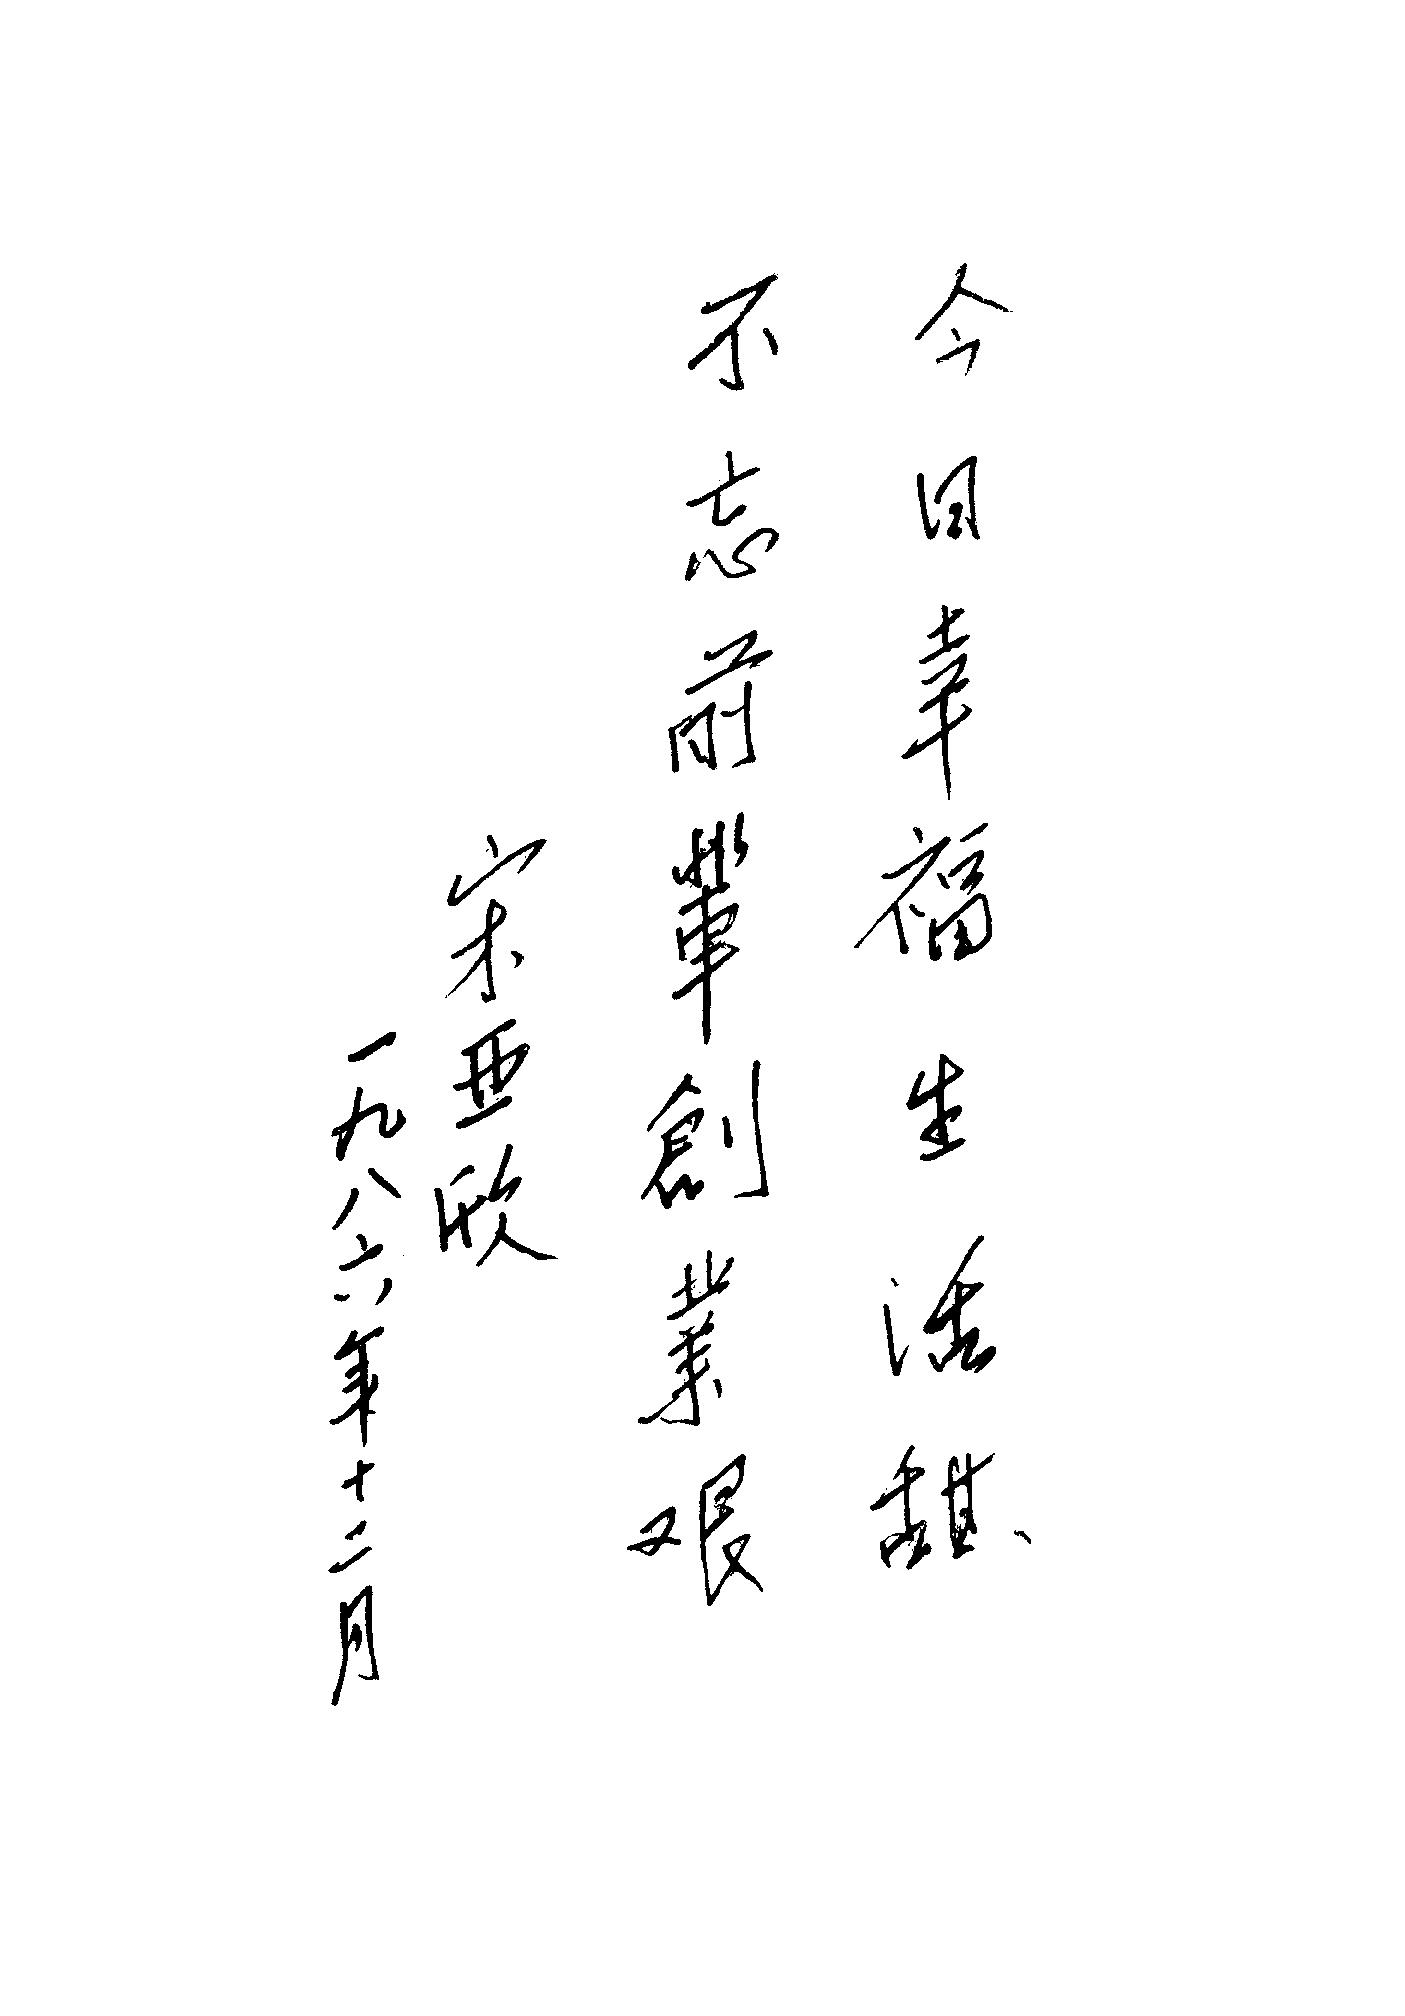 今日幸福生活甜、
不忘前輩創業艰
宋亜欣
一九八六年十二月